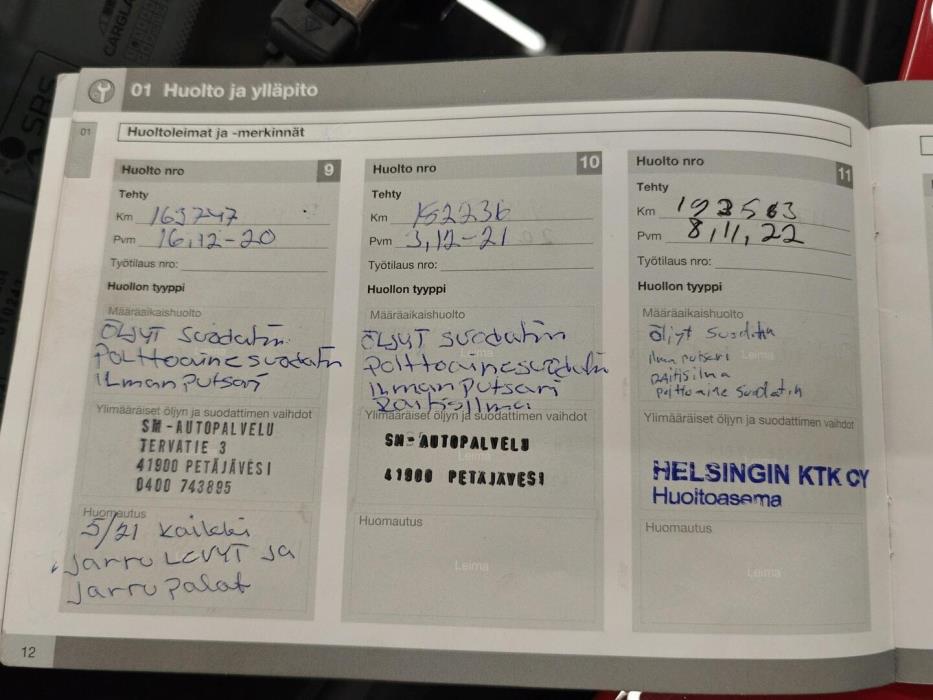 CARGLA
SRS
01 Huolto ja ylläpito
01
Huoltoleimat ja -merkinnät
Huolto nro 9
Tehty
Km 163747
Pvm 16,12-20
Työtilaus nro:
Huollon tyyppi
Määräaikaishuolto
ÖLJYT suodatin
POLTTOaine suodatin
ILman putsari
Ylimääräiset öljyn ja suodattimen vaihdot
SM-AUTOPALVELU
TERVATIE 3
41900 PETÄJÄVESI
0400 743895
Huomautus
5/21 kaikki
Jarru LEVYT ja
Jarru palat
Huolto nro 10
Tehty
Km 182236
Pvm 3,12-21
Työtilaus nro:
Huollon tyyppi
Määräaikaishuolto
Leima
ÖLJYT suodatin
polttoainesuodatin
ILman putsari
Raitisilma
Ylimääräiset öljyn ja suodattimen vaihdot
SM-AUTOPALVELU
Leima
41900 PETÄJÄVESI
Huomautus
Leima
Huolto nro 11
Tehty
Km 193563
Pvm 8,11,22
Työtilaus nro:
Huollon tyyppi
Määräaikaishuolto
öljyt suodatin
ilma putsari Leima
raitisilma
polttoaine suodatin
Ylimääräiset öljyn ja suodattimen vaihdot
HELSINGIN KTK OY
Huoltoasema
Huomautus
Leima
12